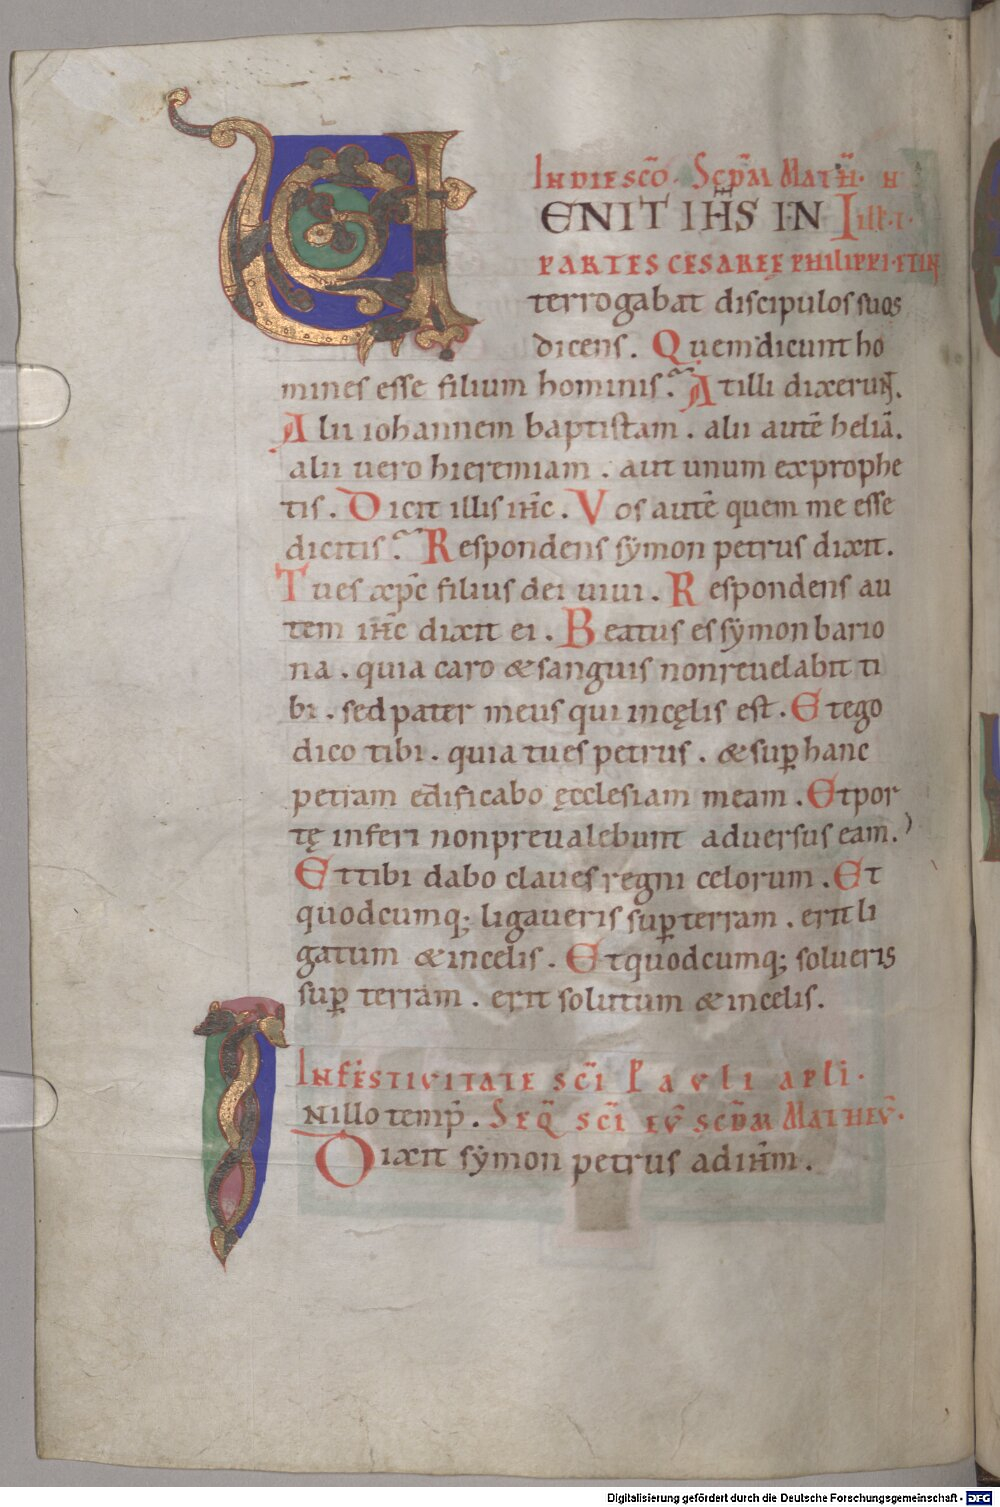 IN DIE SCO. SCDM MATH. N
VENIT IHS IN ILL.T.
PARTES CESAREĘ PHILIPPI·ET IN
terrogabat discipulos suos
dicens. Quem dicunt ho
mines esse filium hominis? At illi dixerunt.
Alii iohannem baptistam. alii autē heliā.
alii uero hieremiam. aut unum ex prophe
tis. Dicit illis ihc. Vos autē quem me esse
dicitis? Respondens symon petrus dixit.
Tu es xpc filius dei uiui. Respondens au
tem ihc dixit ei. Beatus es symon bario
na. quia caro & sanguis non reuelabit ti
bi. sed pater meus qui in cęlis est. Et ego
dico tibi. quia tu es petrus. & sup hanc
petram edificabo ęcclesiam meam. Et por
tę inferi non preualebunt aduersus eam.
Et tibi dabo claues regni celorum. Et
quodcumq; ligaueris sup terram. erit li
gatum & in celis. Et quodcumq; solueris
sup terram. erit solutum & in celis.
IN FESTIVITATE SCI PAVLI APLI.
IN illo temp. SEQ SCI EV SCDM MATHEV.
Dixit symon petrus ad ihm.
Digitalisierung gefördert durch die Deutsche Forschungsgemeinschaft - DFG